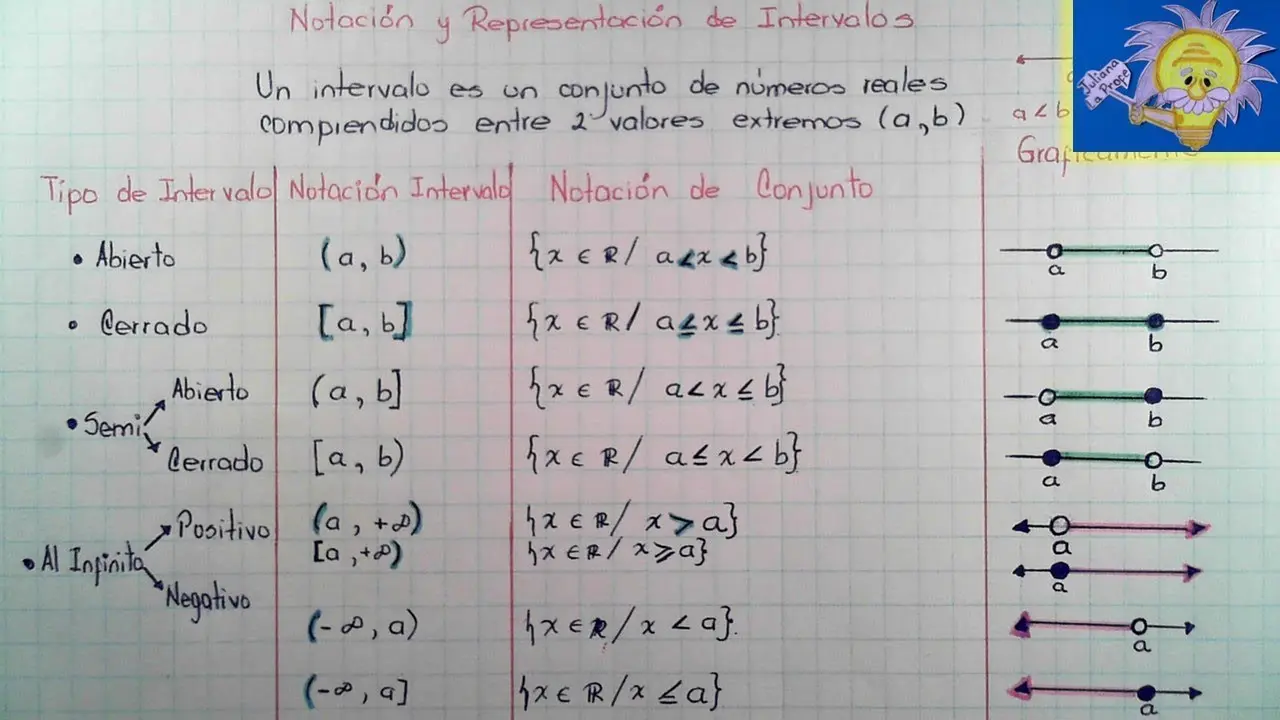 Notación y Representación de Intervalos
Un intervalo es un conjunto de números reales
comprendidos entre 2 valores extremos (a,b)
a
a<b
Juliana
La Profe
Graficamente
Tipo de Intervalo Notación Intervalo Notación de Conjunto
• Abierto (a, b) {x ∈ ℝ/ a<x<b}
a b
• Cerrado [a, b] {x ∈ ℝ/ a≤x≤b}
a b
• Semi
Abierto (a, b] {x ∈ ℝ/ a<x≤b}
a b
Cerrado [a, b) {x ∈ ℝ/ a≤x<b}
a b
• Al Infinito
Positivo (a, +∞) {x ∈ ℝ/ x>a}
a
[a, +∞) {x ∈ ℝ/ x≥a}
a
Negativo
(-∞, a) {x ∈ ℝ/x<a}.
a
(-∞, a] {x ∈ ℝ/x≤a}
a